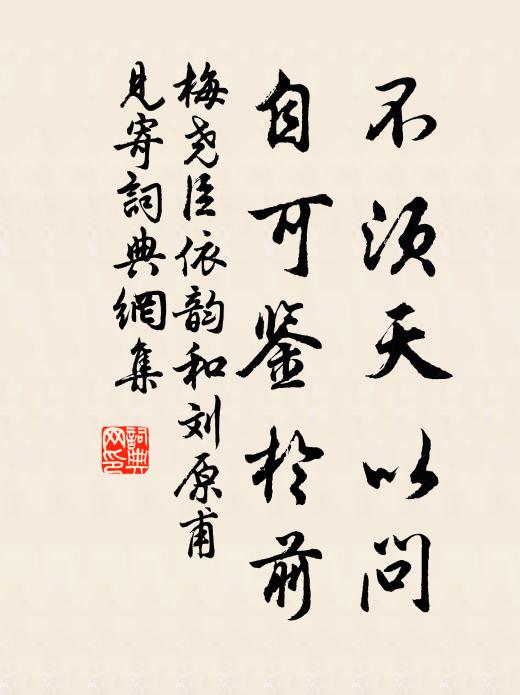 不须天以问
自可鉴於前
梅尧臣依韵和刘原甫
见寄词典網集
詞典
网印